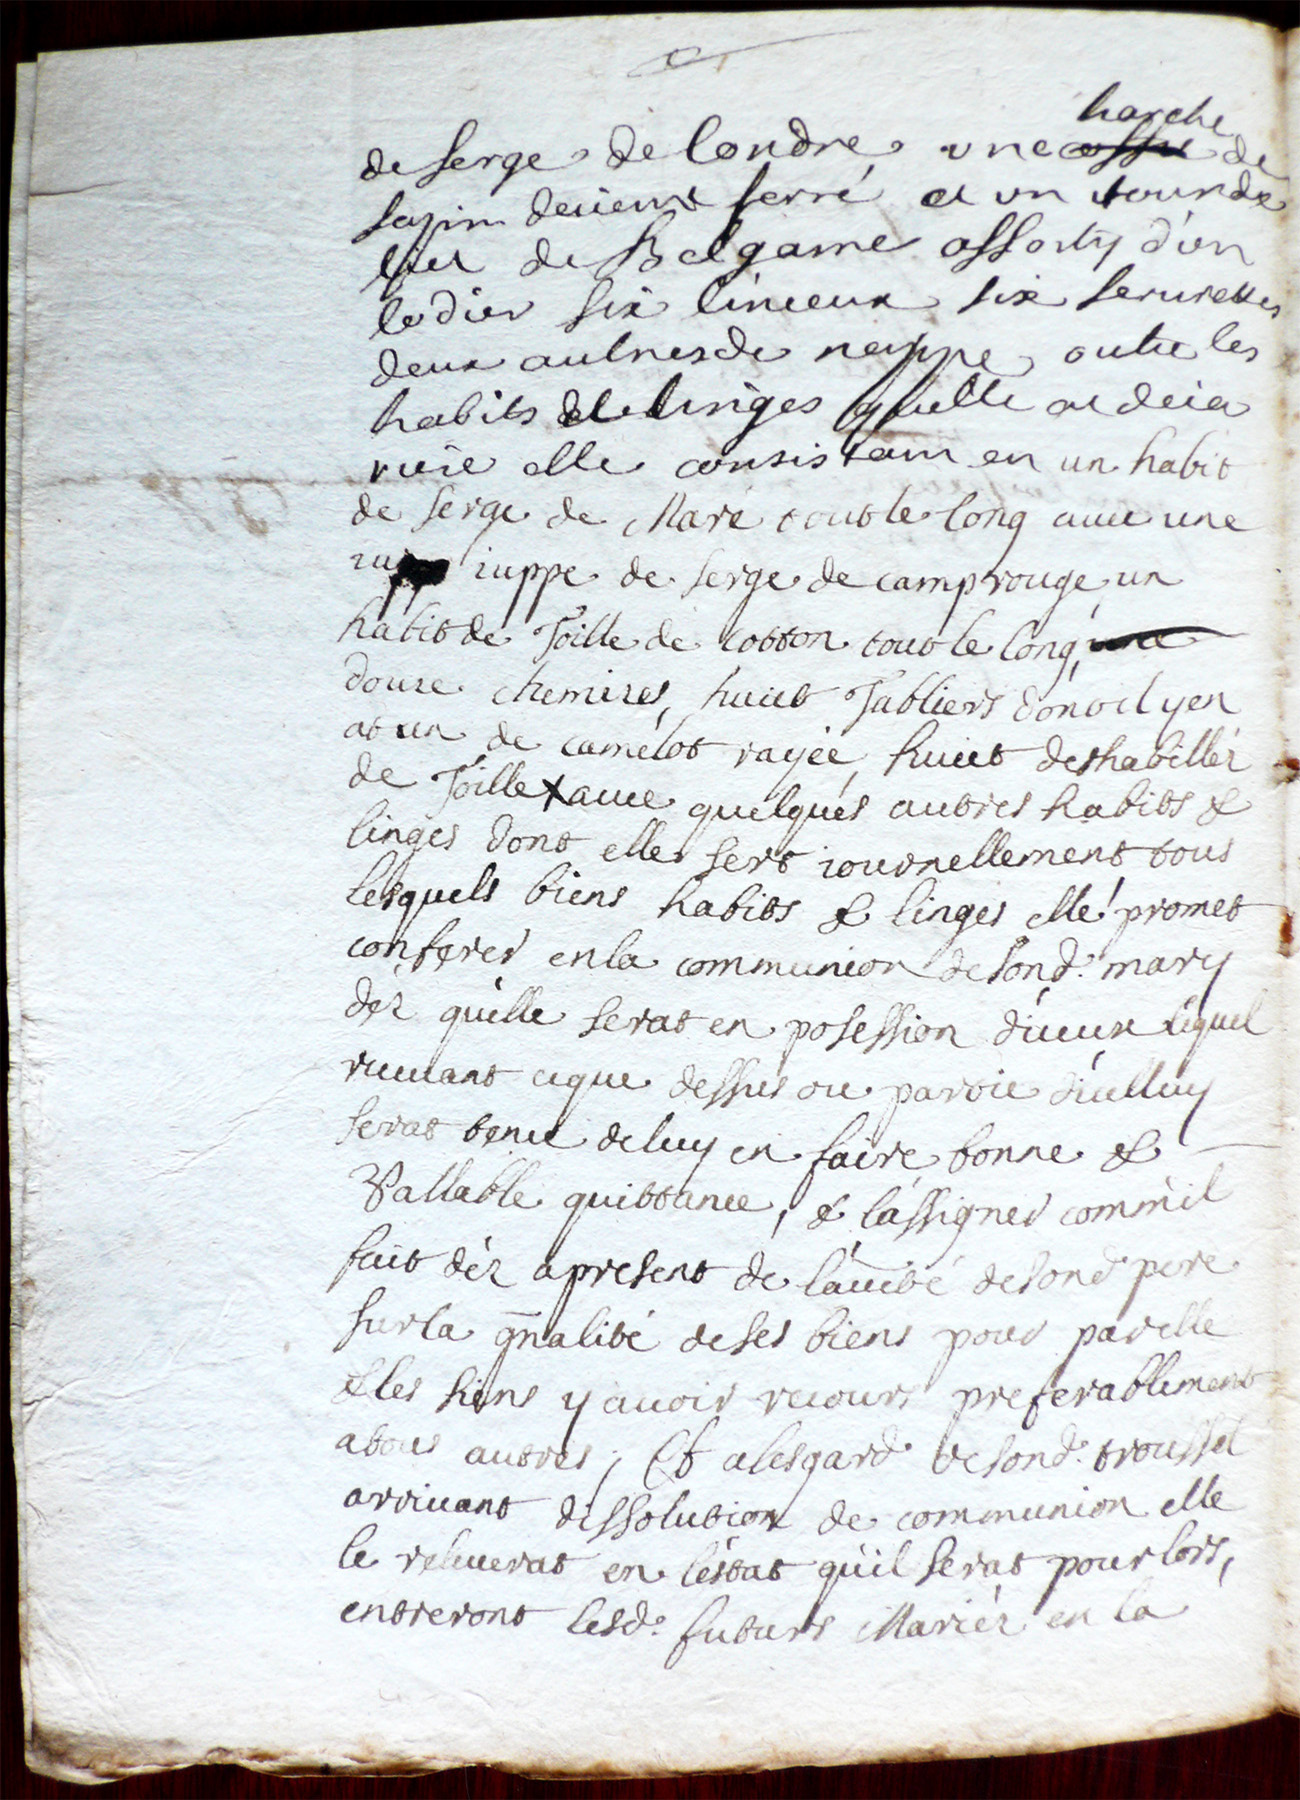 harche
de serge de londre une de
sapin deuient ferré et un tour de
lict de Belgame assorty d'un
lodier six linceux six seruiettes
deux aulnes de nappe outre les
habits et linges quelle at deia
riere elle consistam en un habit
de serge de Maré tout le long auec une
iuppe de serge de camp rouge un
habit de Toille de cotton tout le long,
douze chemises, huict Tabliers dont il y en
at un de camelot rayée, huict deshabilléz
de Toille X auec quelques autres habits &
linges dont elle sert iournellement tous
lesquels biens habits & linges elle promet
conferer en la communion de sond. mary
déz qu'elle serat en posession d'iceux lequel
receuant ce que dessus ou partie d'icelluy
serat tenu de luy en faire bonne &
Vallable quittance, & l'assigner comm'il
fait déz apresent de l'autté de sond. pere
sur la gnalité de ses biens pour par elle
& les siens y auoir recours preferablement
a tous autres; Et alesgard de sond. troussel
arriuant dissolution de communion elle
le releuerat en l'éstat qu'il serat pour lors,
entreront lesd. futurs Mariéz en la